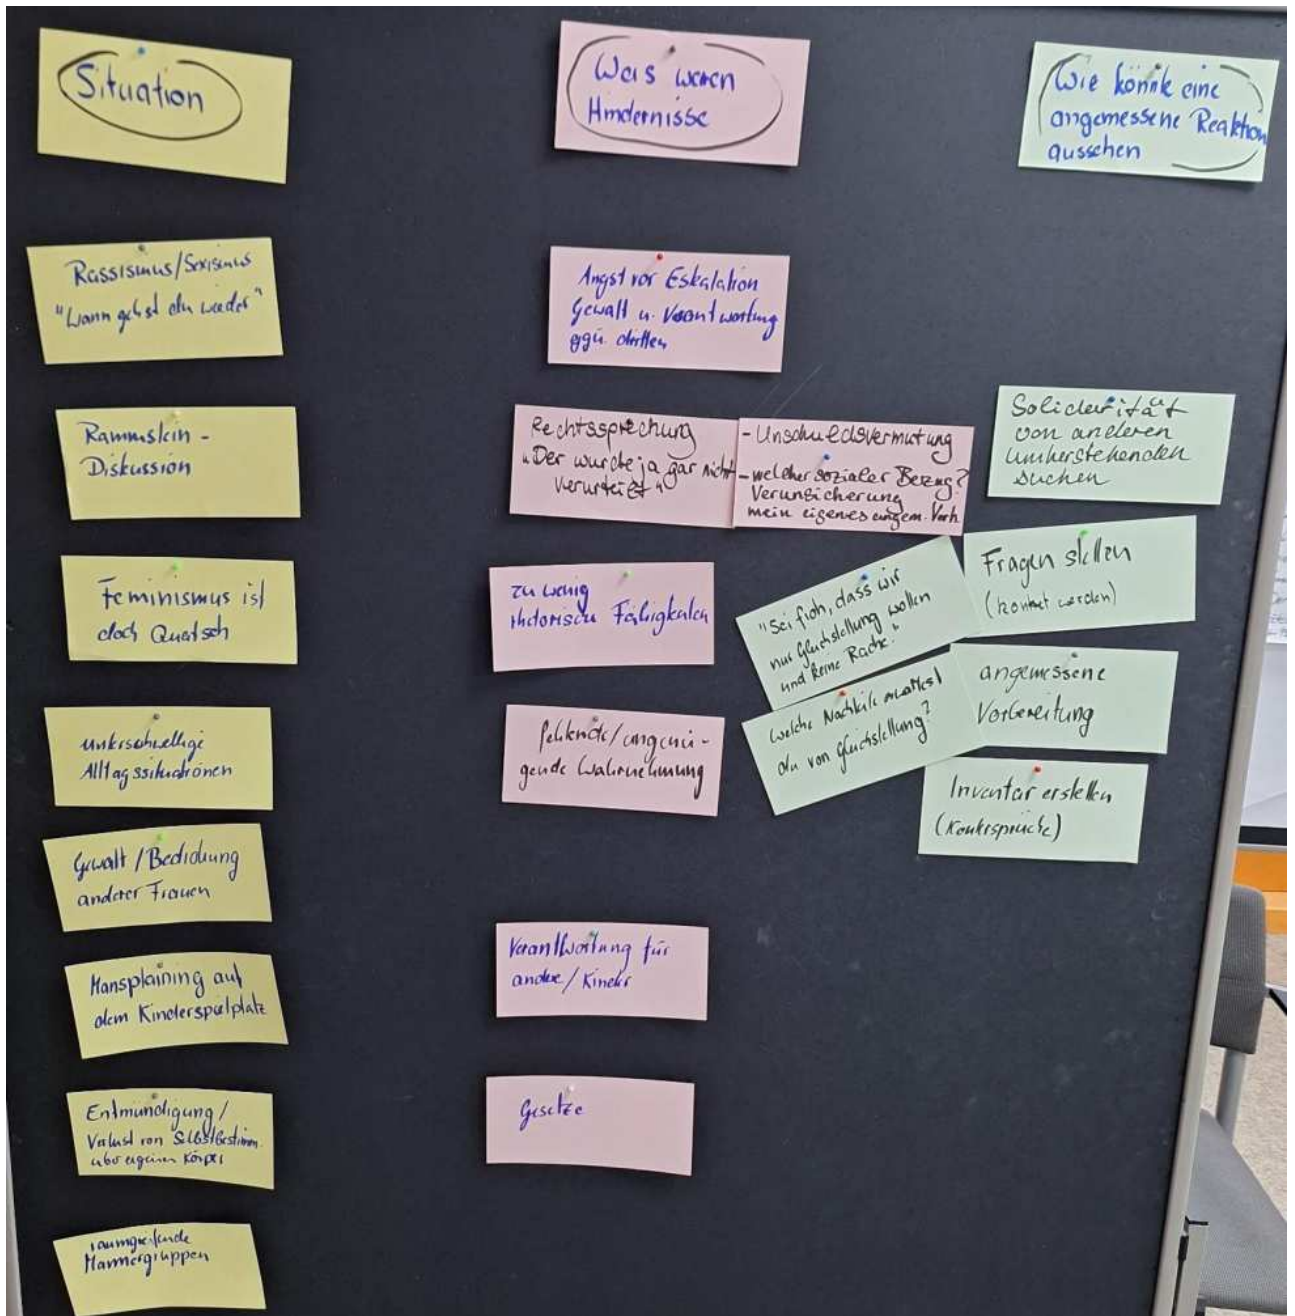 Situation
Rassismus/Sexismus
"Wann gehst du wieder"
Rammstein -
Diskussion
Feminismus ist
doch Quatsch
unterschwellige
Alltagssituationen
Gewalt / Bedrohung
anderer Frauen
Mansplaining auf
dem Kinderspielplatz
Entmündigung /
Verlust von Selbstbestimm.
über eigenen Körper
raumgreifende
Männergruppen
Was waren
Hindernisse
Angst vor Eskalation
Gewalt u. Verantwortung
ggü. dritten
Rechtssprechung
"Der wurde ja gar nicht
verurteilt"
- Unschuldsvermutung
- welcher sozialer Bezug?
Verunsicherung
mein eigenes angem. Verh.
zu wenig
rhetorische Fähigkeiten
fehlende/ungenü-
gende Wahrnehmung
Verantwortung für
andere / Kinder
Gesetze
Wie könnte eine
angemessene Reaktion
aussehen
Solidarität
von anderen
umherstehenden
suchen
Fragen stellen
(konkret werden)
"Sei froh, dass wir
nur Gleichstellung wollen
und keine Rache."
angemessene
Vorbereitung
Welche Nachteile erwartest
du von Gleichstellung?
Inventar erstellen
(Kontersprüche)